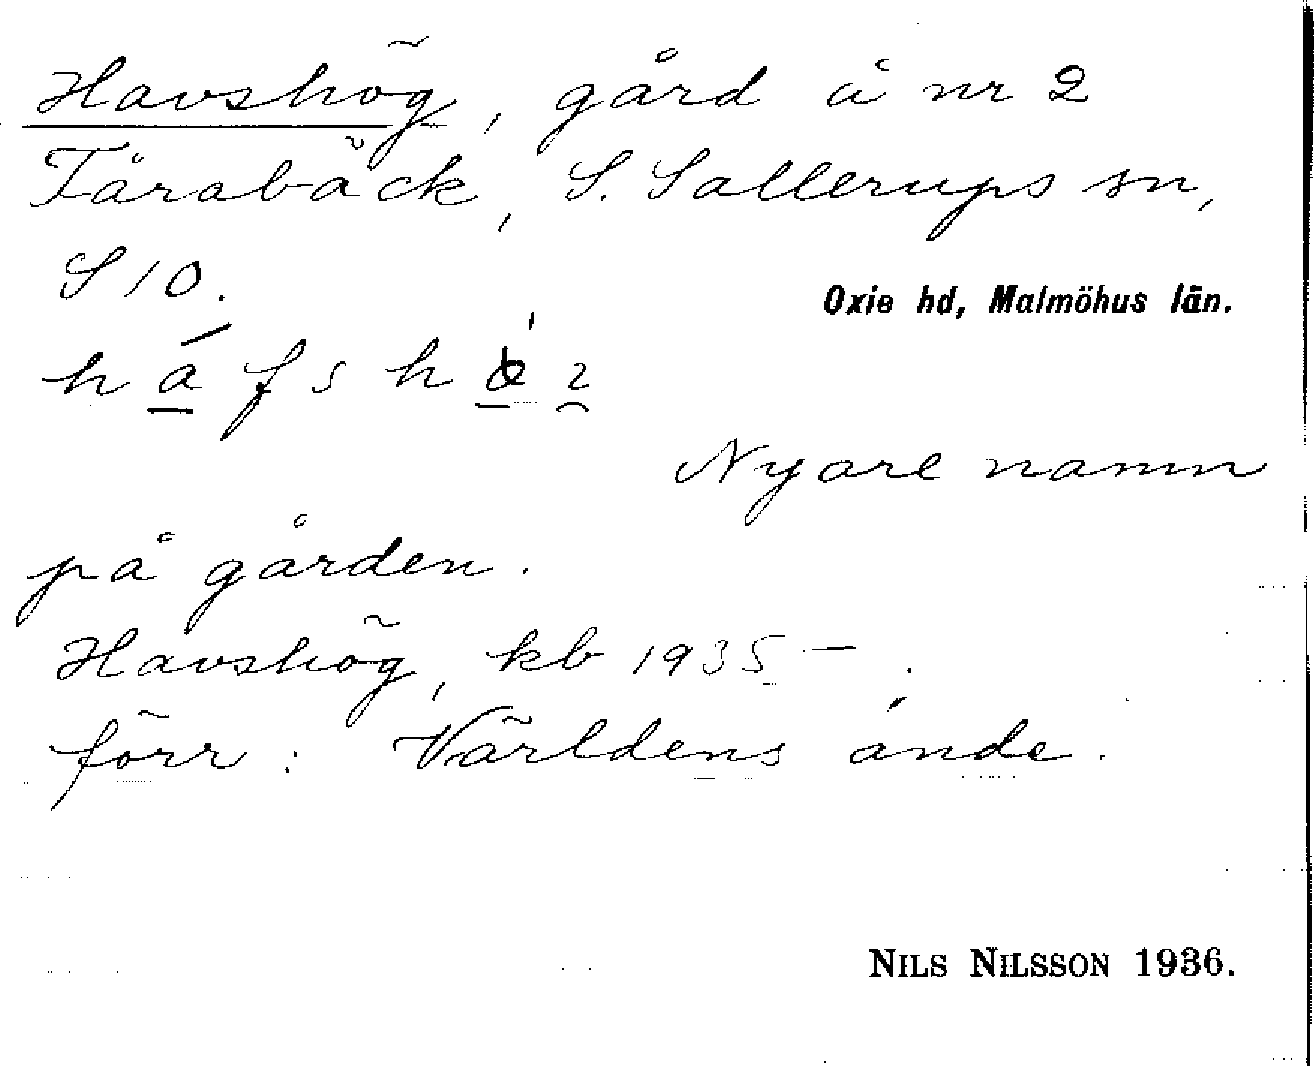 Havshög, gård å nr 2
Tårabäck, S. Sallerups sn,
S 10.
Oxie hd, Malmöhus län.
Nyare namn
på gården.
Havshög, kb 1935–.
förr: Världens ände.
NILS NILSSON 1936.